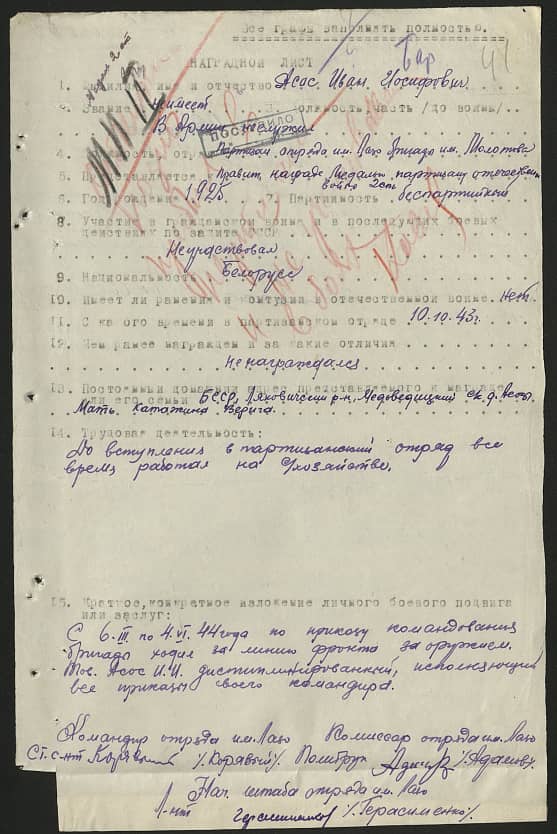 Все графы заполнять полностью.
Бар
41
НАГРАДНОЙ ЛИСТ
1. Фамилия, имя и отчество Асос. Иван. Иосифович
2. Звание неимеет 3. Должность, часть /до войны/
В Армии неслужил
ПОСТУПИЛО
4. Партизан отряда им. Лазо бригады им. Молотова
5. Представляется к Правит. награде Медали „партизану отечествен
войны 2 ст"
6. Год рождения 1925 7. Партийность беспартийный
8. Участие в гражданской войне и в последующих боевых
действиях по защите СССР
Неучаствовал
9. Национальность Белорусс
10. Имеет ли ранения и контузии в отечественной войне. нет.
11. С какого времени в партизанском отряде 10.10.43г.
12. Чем ранее награжден и за какие отличия
Ненаграждался
13. Постоянный домашний адрес представляемого к награде
или его семьи БССР, Ляховический р-н, Медведицкий ск. д. Асовы.
Мать. Катажина Верига.
14. Трудовая деятельность:
До вступления в партизанский отряд все
время работал на с/хозяйстве.
15. Краткое, конкретное изложение личного боевого подвига
или заслуг:
С 6. III. по 4. VI. 44 года по приказу командования
бригады ходил за линию фронта за оружием.
Тов. Асос И.И. дистиплинированный, исполняющий
все приказы своего командира.
Командир отряда им. Лазо Комиссар отряда им. Лазо
Ст. с-нт Корявый /Корявый/. Политрук /Адамов/.
Нач. штаба отряда им. Лазо
Л-нт Герасименко /Герасименко/.